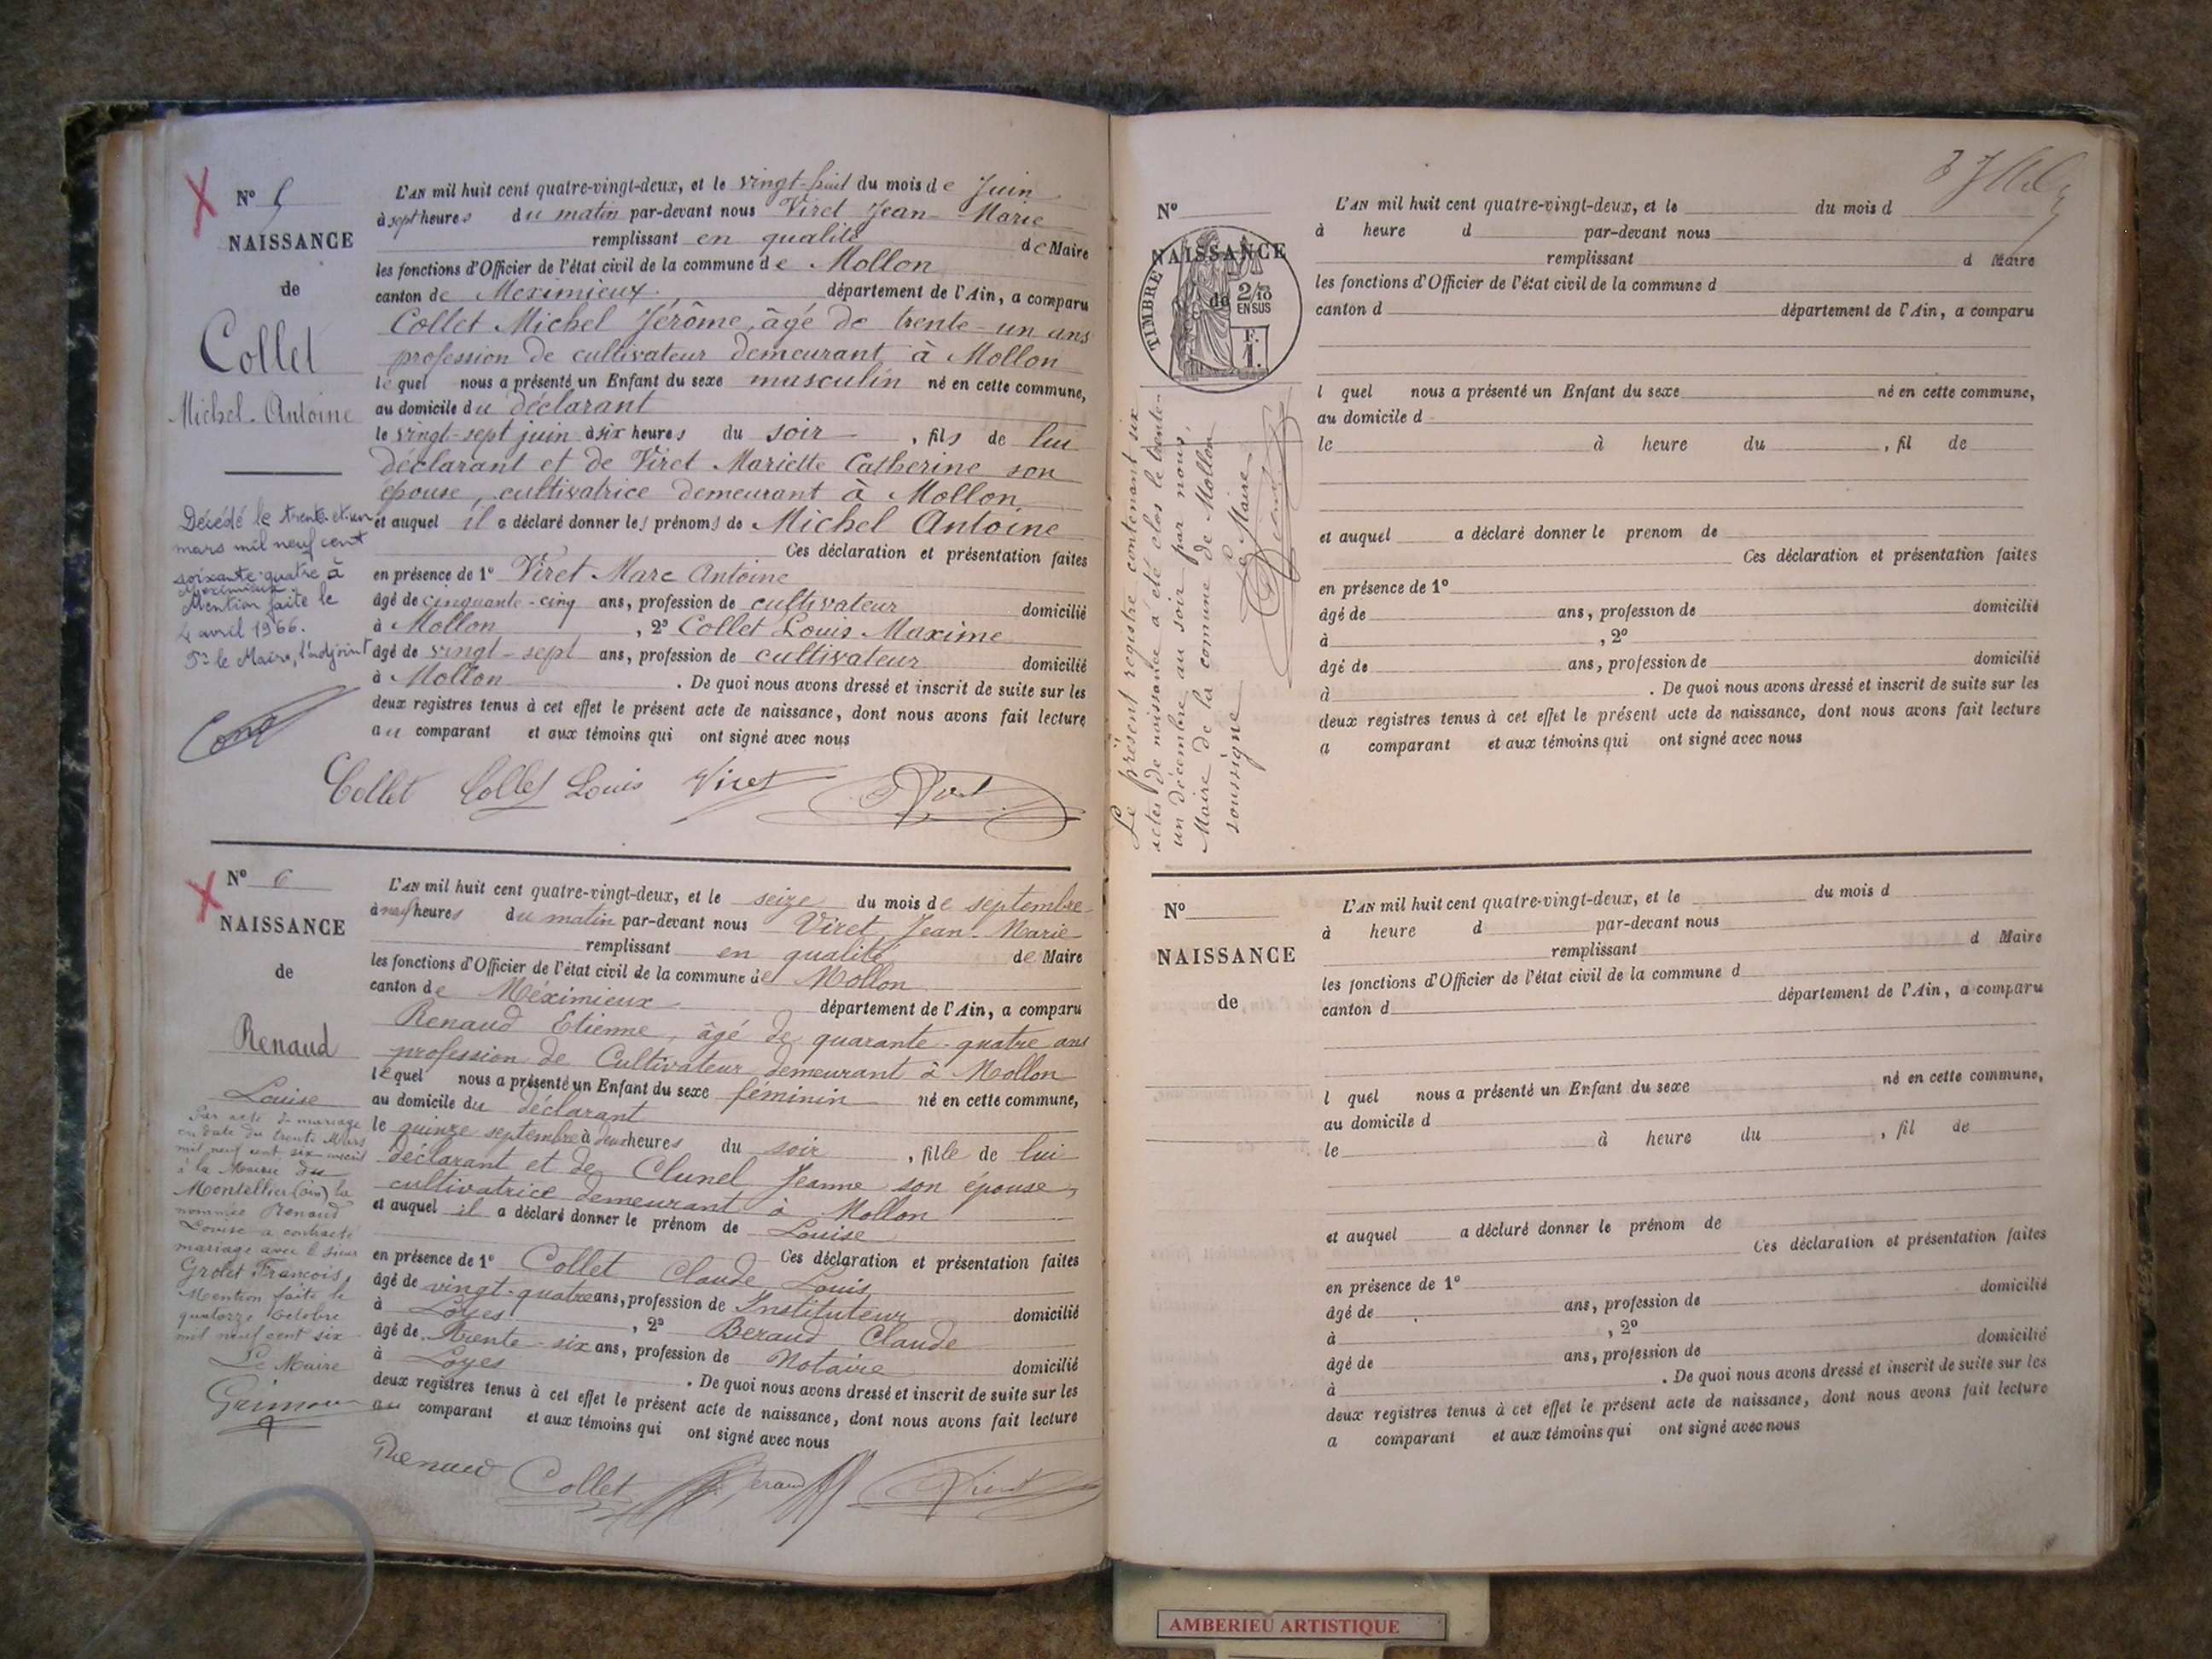 N° 5
NAISSANCE
de
Collet
Michel Antoine
Décédé le trente et un
mars mil neuf cent
soixante-quatre à
Meximieux.
Mention faite le
4 avril 1966.
Pr le Maire, l'adjoint
L'AN mil huit cent quatre-vingt-deux, et le vingt-huit du mois de Juin
à sept heures du matin par-devant nous Viret Jean-Marie
remplissant en qualité de Maire
les fonctions d'Officier de l'état civil de la commune de Mollon
canton de Meximieux département de l'Ain, a comparu
Collet Michel Jérôme, âgé de trente-un ans
profession de cultivateur demeurant à Mollon
lequel nous a présenté un Enfant du sexe masculin né en cette commune,
au domicile du déclarant
le vingt-sept juin à six heures du soir, fils de lui
déclarant et de Viret Mariette Catherine son
épouse, cultivatrice demeurant à Mollon
et auquel il a déclaré donner les prénoms de Michel Antoine
Ces déclaration et présentation faites
en présence de 1° Viret Marc Antoine
âgé de cinquante-cinq ans, profession de cultivateur domicilié
à Mollon, 2° Collet Louis Maxime
âgé de vingt-sept ans, profession de cultivateur domicilié
à Mollon. De quoi nous avons dressé et inscrit de suite sur les
deux registres tenus à cet effet le présent acte de naissance, dont nous avons fait lecture
au comparant et aux témoins qui ont signé avec nous
Collet Collet Louis Viret Viret
N° 6
NAISSANCE
de
Renaud
Louise
Par acte de mariage
en date du trente Mars
mil neuf cent six inscrit
à la Mairie du
Montellier (Ain) la
nommée Renaud
Louise a contracté
mariage avec le sieur
Grolet François,
Mention faite le
quatorze Octobre
mil neuf cent six
Le Maire
L'AN mil huit cent quatre-vingt-deux, et le seize du mois de septembre
à neuf heures du matin par-devant nous Viret Jean-Marie
remplissant en qualité de Maire
les fonctions d'Officier de l'état civil de la commune de Mollon
canton de Méximieux département de l'Ain, a comparu
Renaud Etienne, âgé de quarante-quatre ans
profession de Cultivateur demeurant à Mollon
lequel nous a présenté un Enfant du sexe féminin né en cette commune,
au domicile du déclarant
le quinze septembre à deux heures du soir, fille de lui
déclarant et de Clunel Jeanne son épouse,
cultivatrice demeurant à Mollon
et auquel il a déclaré donner le prénom de Louise
Ces déclaration et présentation faites
en présence de 1° Collet Claude Louis
âgé de vingt-quatre ans, profession de Instituteur domicilié
à Loyes, 2° Beraud Claude
âgé de trente-six ans, profession de Notaire domicilié
à Loyes. De quoi nous avons dressé et inscrit de suite sur les
deux registres tenus à cet effet le présent acte de naissance, dont nous avons fait lecture
au comparant et aux témoins qui ont signé avec nous
Renaud Collet Beraud Viret
N°
NAISSANCE
de
TIMBRE
2/10
EN SUS
F.
1.
Le présent registre contenant six
actes de naissance a été clos le trente-
un décembre au soir par nous,
Maire de la commune de Mollon
soussigné Le Maire
Viret
L'AN mil huit cent quatre-vingt-deux, et le du mois d
à heure d par-devant nous
remplissant d Maire
les fonctions d'Officier de l'état civil de la commune d
canton d département de l'Ain, a comparu
l quel nous a présenté un Enfant du sexe né en cette commune,
au domicile d
le à heure du , fil de
et auquel a déclaré donner le prenom de
Ces déclaration et présentation faites
en présence de 1°
âgé de ans, profession de domicilié
à , 2°
âgé de ans, profession de domicilié
à . De quoi nous avons dressé et inscrit de suite sur les
deux registres tenus à cet effet le présent acte de naissance, dont nous avons fait lecture
a comparant et aux témoins qui ont signé avec nous
N°
NAISSANCE
de
L'AN mil huit cent quatre-vingt-deux, et le du mois d
à heure d par-devant nous
remplissant d Maire
les fonctions d'Officier de l'état civil de la commune d
canton d département de l'Ain, a comparu
l quel nous a présenté un Enfant du sexe né en cette commune,
au domicile d
le à heure du , fil de
et auquel a déclaré donner le prénom de
Ces déclaration et présentation faites
en présence de 1°
âgé de ans, profession de domicilié
à , 2°
âgé de ans, profession de domicilié
à . De quoi nous avons dressé et inscrit de suite sur les
deux registres tenus à cet effet le présent acte de naissance, dont nous avons fait lecture
a comparant et aux témoins qui ont signé avec nous
AMBERIEU ARTISTIQUE